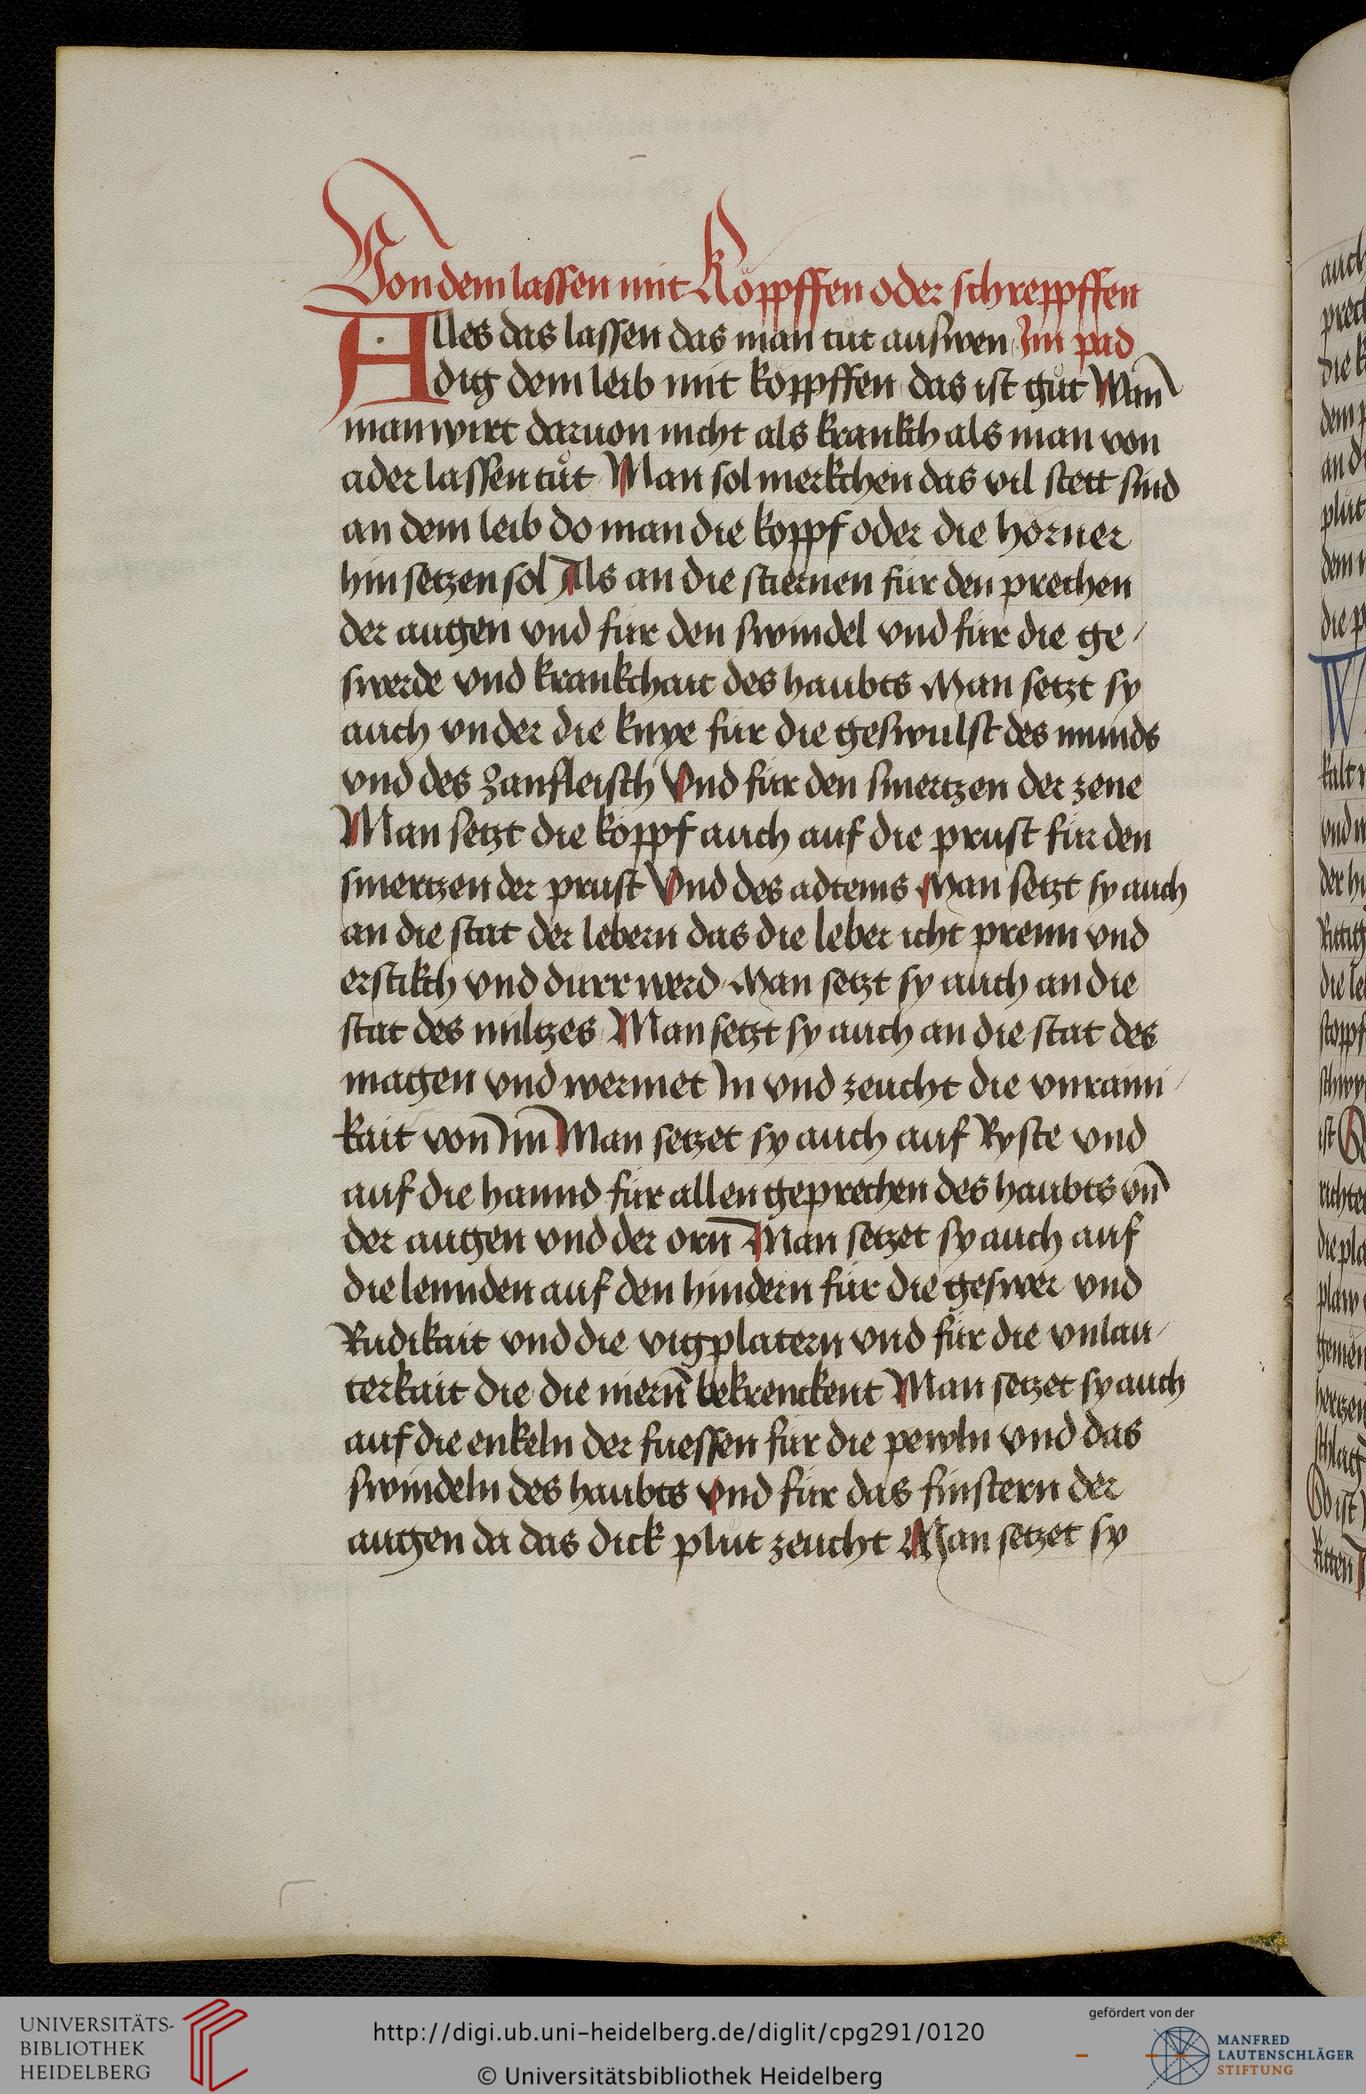 Von dem lassen mit Köppffen oder schreppffen
Alles das lassen das man tut auswen Im pad
dig dem leib mit köppffen das ist gůt Wan̄
man wirt daruon nicht als krankch als man von
ader lassen tůt Man sol merkchen das vil stett sind
an dem leib do man die köppf oder die hörner
hin setzen sol Als an die stiernen für den prechen
der augen vnd für den swindel vnd für die ge
swerde vnd krankchait des haubts Man setzt sy
auch vnder die knye für die geswulst des munds
vnd des Zanfleisch Vnd für den smertzen der zene
Man setzt die köppf auch auf die prust für den
smertzen der prust Vnd des adtems Man setzt sy auch
an die stat der lebern das die leber icht prenn vnd
erstikch vnd durr werd Man setzt sy auch an die
stat des miltzes Man setzt sy auch an die stat des
magen vnd wermet In vnd zeucht die vnraini
kait von Im Man setzet sy auch auf Ryste vnd
auf die hannd für allen geprechen des haubts vn̄
der augen vnd der orn̄ Man setzet sy auch auf
die lennden auf den hindern für die geswer vnd
Rudikait vnd die vigplatern vnd für die vnlau
terkait die die niern̄ bekrenckent Man setzet sy auch
auf die enkeln der fuessen für die pewln vnd das
swindeln des haubts Vnd für das finstern der
augen da das dick plut zeucht Man setzet sy
UNIVERSITÄTS-
BIBLIOTHEK
HEIDELBERG
http://digi.ub.uni-heidelberg.de/diglit/cpg291/0120
© Universitätsbibliothek Heidelberg
gefördert von der
MANFRED
LAUTENSCHLÄGER
STIFTUNG